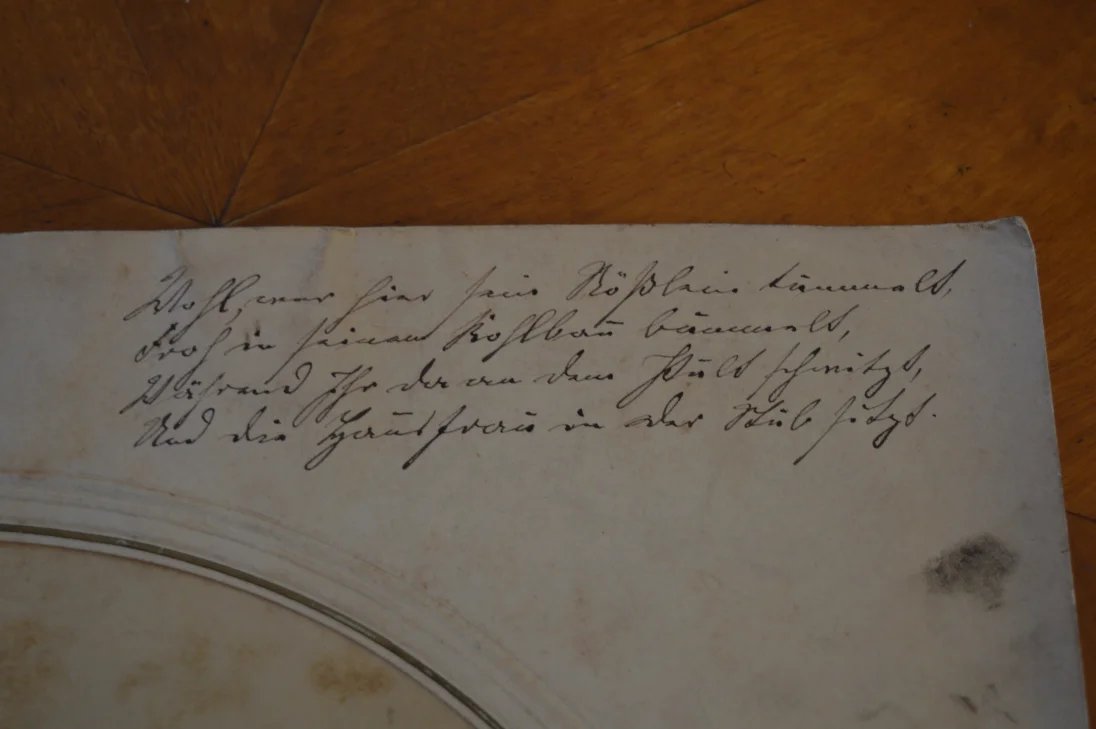 Wohl, wer hier sein Rößlein tummelt,
Froh in seinem Kohlbau bummelt,
Während Ihr da an dem Pult schwitzt,
Und die Hausfrau in der Stub sitzt.